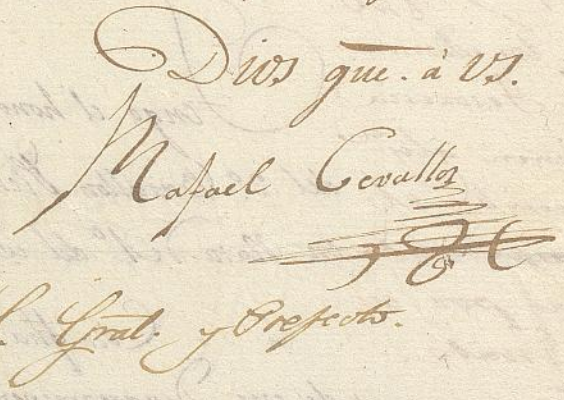 Dios gue. à VS.
Rafael Cevallos
S. Gral. y Prefecto.